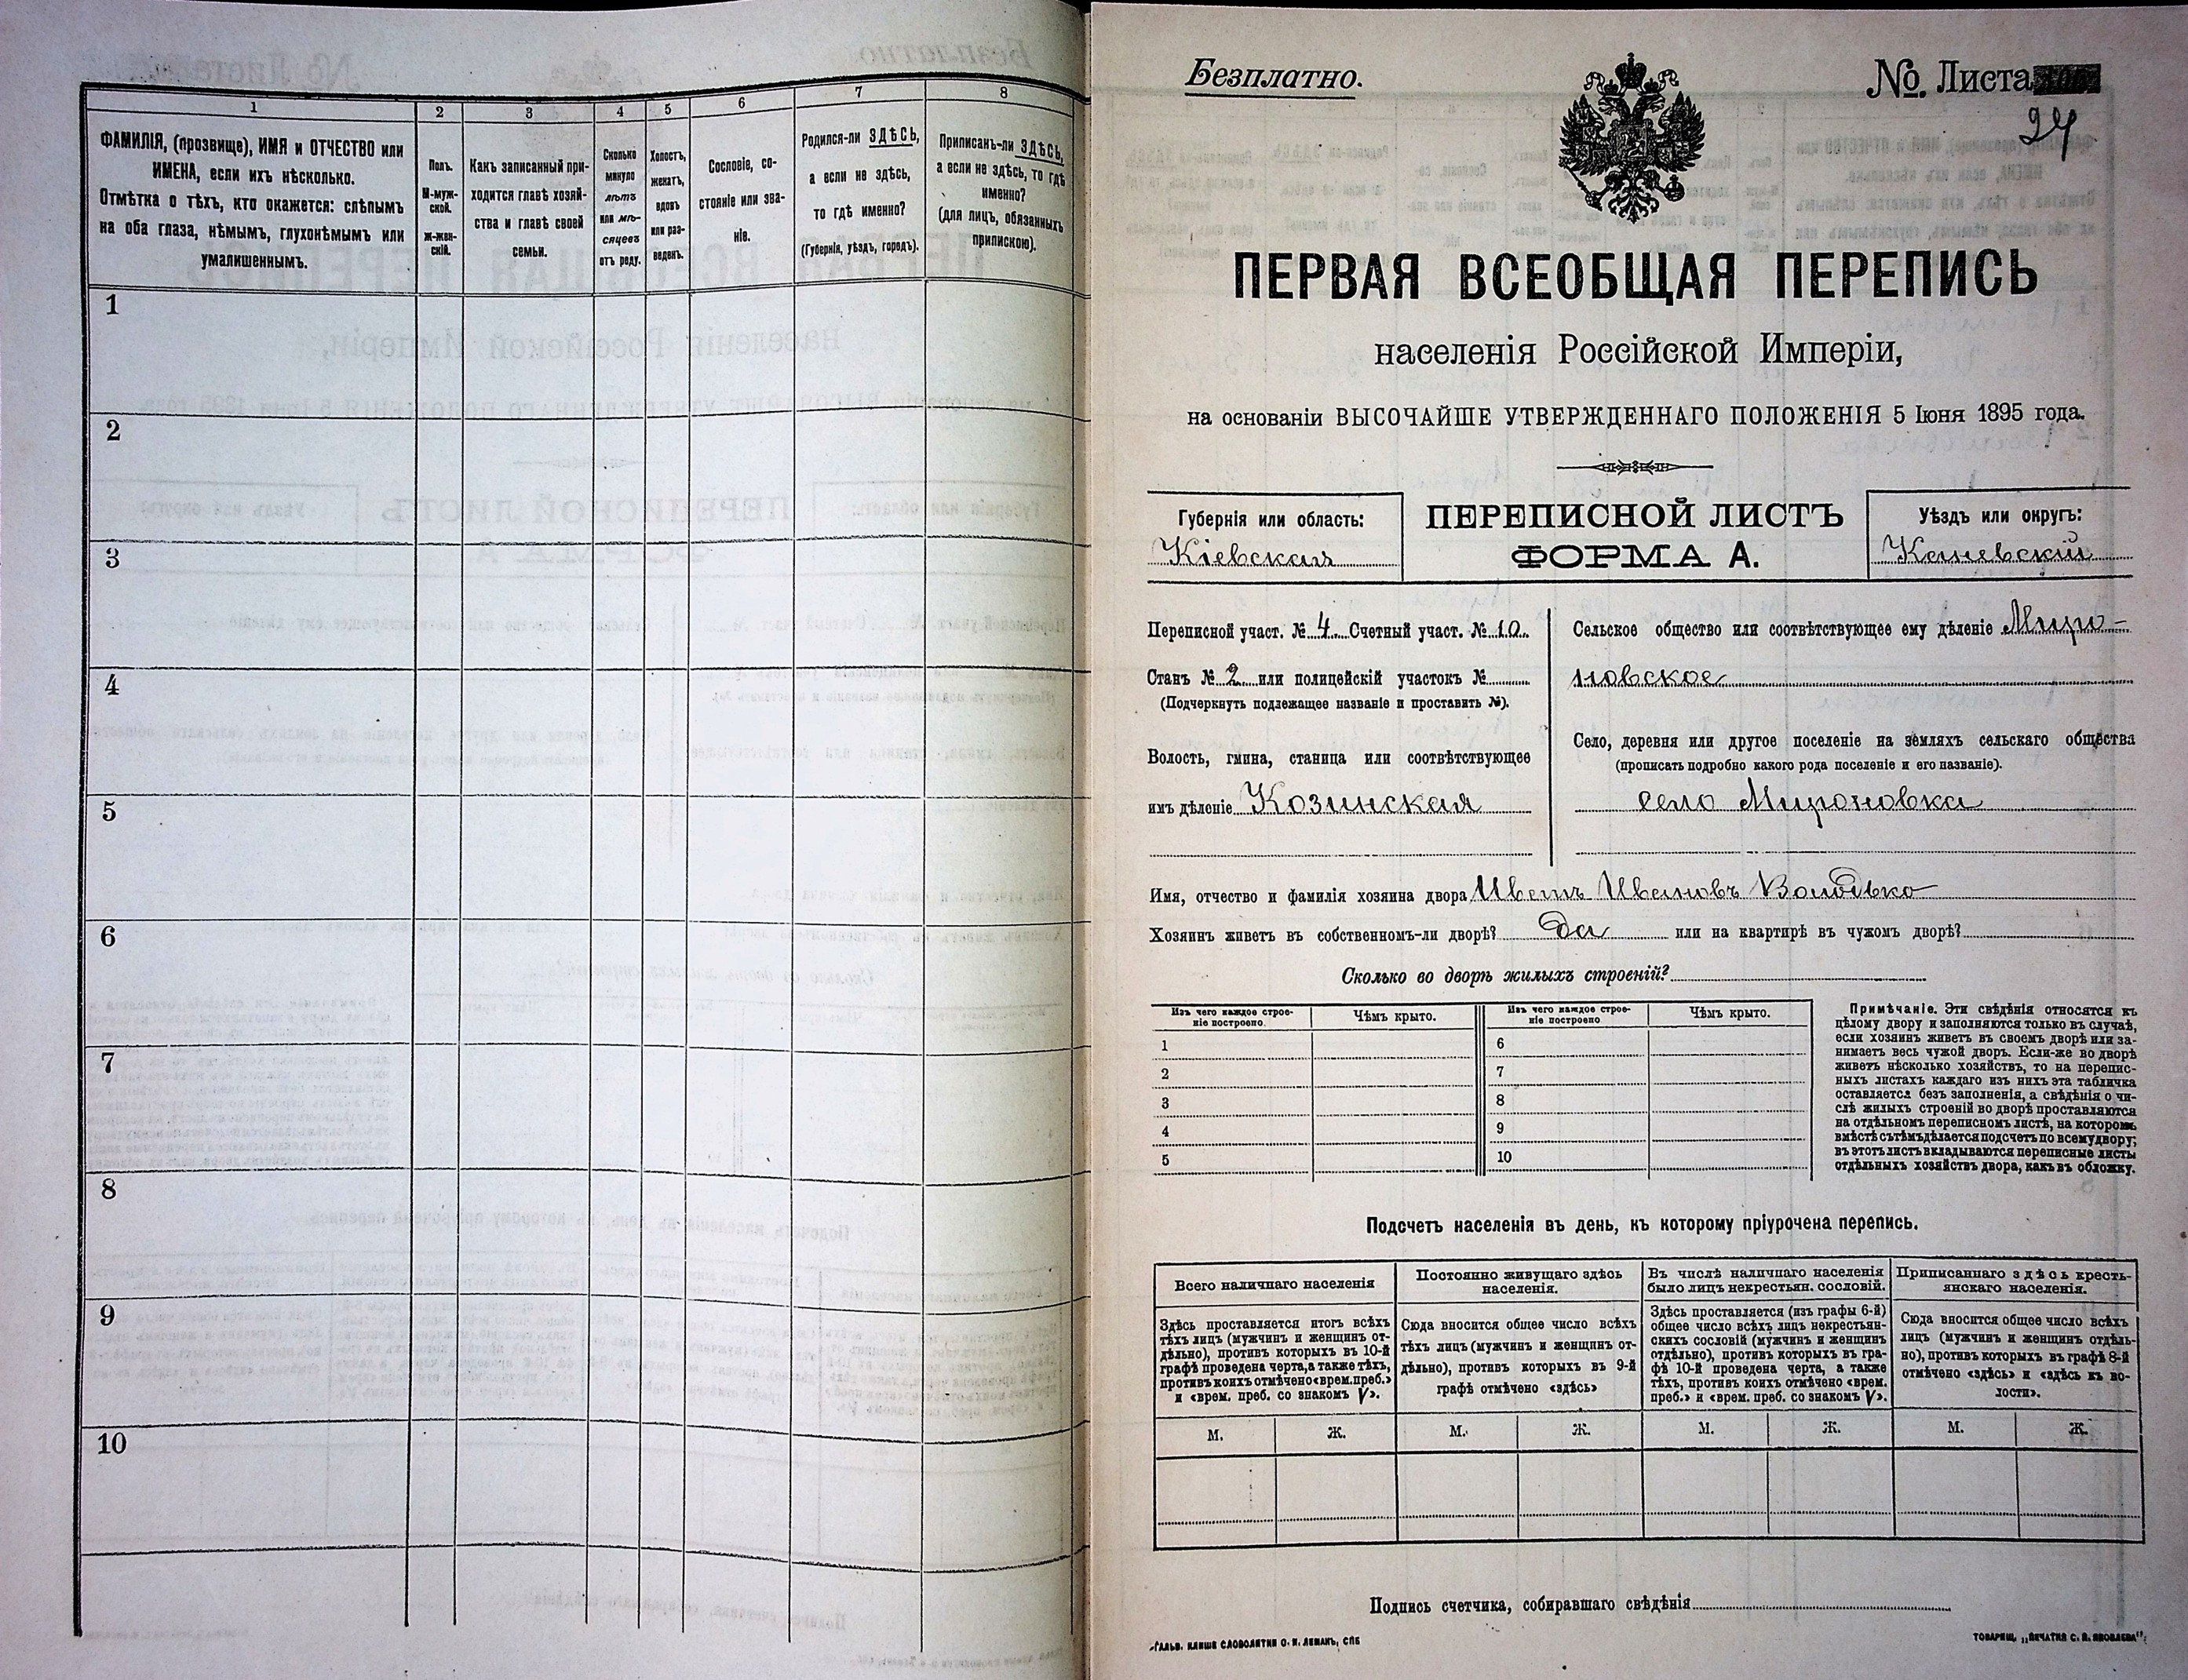 1
2
3
4
5
6
7
8
ФАМИЛІЯ, (прозвище), ИМЯ и ОТЧЕСТВО или
ИМЕНА, если ихъ нѣсколько.
Отмѣтка о тѣхъ, кто окажется: слѣпымъ
на оба глаза, нѣмымъ, глухонѣмымъ или
умалишеннымъ.
Полъ.
М-муж-
ской.
Ж-жен-
скій.
Какъ записанный при-
ходится главѣ хозяй-
ства и главѣ своей
семьи.
Сколько
минуло
лѣтъ
или мѣ-
сяцевъ
отъ роду.
Холостъ,
женатъ,
вдовъ
или раз-
веденъ.
Сословіе, со-
стояніе или зва-
ніе.
Родился-ли ЗДѢСЬ,
а если не здѣсь,
то гдѣ именно?
(Губернія, уѣздъ, городъ).
Приписанъ-ли ЗДѢСЬ,
а если не здѣсь, то гдѣ
именно?
(для лицъ, обязанныхъ
припискою).
1
2
3
4
5
6
7
8
9
10
Безплатно.
№ Листа
24
ПЕРВАЯ ВСЕОБЩАЯ ПЕРЕПИСЬ
населенія Россійской Имперіи,
на основаніи ВЫСОЧАЙШЕ УТВЕРЖДЕННАГО ПОЛОЖЕНІЯ 5 Іюня 1895 года.
Губернія или область:
Кіевская
ПЕРЕПИСНОЙ ЛИСТЪ
ФОРМА А.
Уѣздъ или округъ:
Каневскій
Переписной участ. № 4 Счетный участ. № 10
Станъ № 2 или полицейскій участокъ №
(Подчеркнуть подлежащее названіе и проставить №).
Волость, гмина, станица или соотвѣтствующее
имъ дѣленіе Козинская
Сельское общество или соотвѣтствующее ему дѣленіе Миро-
новское
Село, деревня или другое поселеніе на земляхъ сельскаго общества
(прописать подробно какого рода поселеніе и его названіе).
село Мироновка
Имя, отчество и фамилія хозяина двора Иванъ Ивановъ Володько
Хозяинъ живетъ въ собственномъ-ли дворѣ? Да или на квартирѣ въ чужомъ дворѣ?
Сколько во дворѣ жилыхъ строеній?
Изъ чего каждое строе-
ніе построено.
Чѣмъ крыто.
Изъ чего каждое строе-
ніе построено
Чѣмъ крыто.
1
2
3
4
5
6
7
8
9
10
Примѣчаніе. Эти свѣдѣнія относятся къ
цѣлому двору и заполняются только въ случаѣ,
если хозяинъ живетъ въ своемъ дворѣ или за-
нимаетъ весь чужой дворъ. Если-же во дворѣ
живетъ нѣсколько хозяйствъ, то на перепис-
ныхъ листахъ каждаго изъ нихъ эта табличка
оставляется безъ заполненія, а свѣдѣнія о чи-
слѣ жилыхъ строеній во дворѣ проставляются
на отдѣльномъ переписномъ листѣ, на которомъ
вмѣстѣ съ тѣмъ дѣлается подсчетъ по всему двору;
въ этотъ листъ вкладываются переписные листы
отдѣльныхъ хозяйствъ двора, какъ въ обложку.
Подсчетъ населенія въ день, къ которому пріурочена перепись.
Всего наличнаго населенія
Здѣсь проставляется итогъ всѣхъ
тѣхъ лицъ (мужчинъ и женщинъ от-
дѣльно), противъ которыхъ въ 10-й
графѣ проведена черта, а также тѣхъ,
противъ коихъ отмѣчено «врем. преб.»
и «врем. преб. со знакомъ V».
Постоянно живущаго здѣсь
населенія.
Сюда вносится общее число всѣхъ
тѣхъ лицъ (мужчинъ и женщинъ от-
дѣльно), противъ которыхъ въ 9-й
графѣ отмѣчено «здѣсь»
Въ числѣ наличнаго населенія
было лицъ некрестьян. сословій.
Здѣсь проставляется (изъ графы 6-й)
общее число всѣхъ лицъ некрестьян-
скихъ сословій (мужчинъ и женщинъ
отдѣльно), противъ которыхъ въ гра-
фѣ 10-й проведена черта, а также
тѣхъ, противъ коихъ отмѣчено «врем.
преб.» и «врем. преб. со знакомъ V».
Приписаннаго здѣсь кресть-
янскаго населенія.
Сюда вносится общее число всѣхъ
лицъ (мужчинъ и женщинъ отдѣль-
но), противъ которыхъ въ графѣ 8-й
отмѣчено «здѣсь» и «здѣсь въ во-
лости».
М.
Ж.
М.
Ж.
М.
Ж.
М.
Ж.
Подпись счетчика, собиравшаго свѣдѣнія
ГАЛЬВ. КЛИШЕ СЛОВОЛИТНИ О. И. ЛЕМАНЪ, СПБ
ТОВАРИЩ. „ПЕЧАТНЯ С. П. ЯКОВЛЕВА“